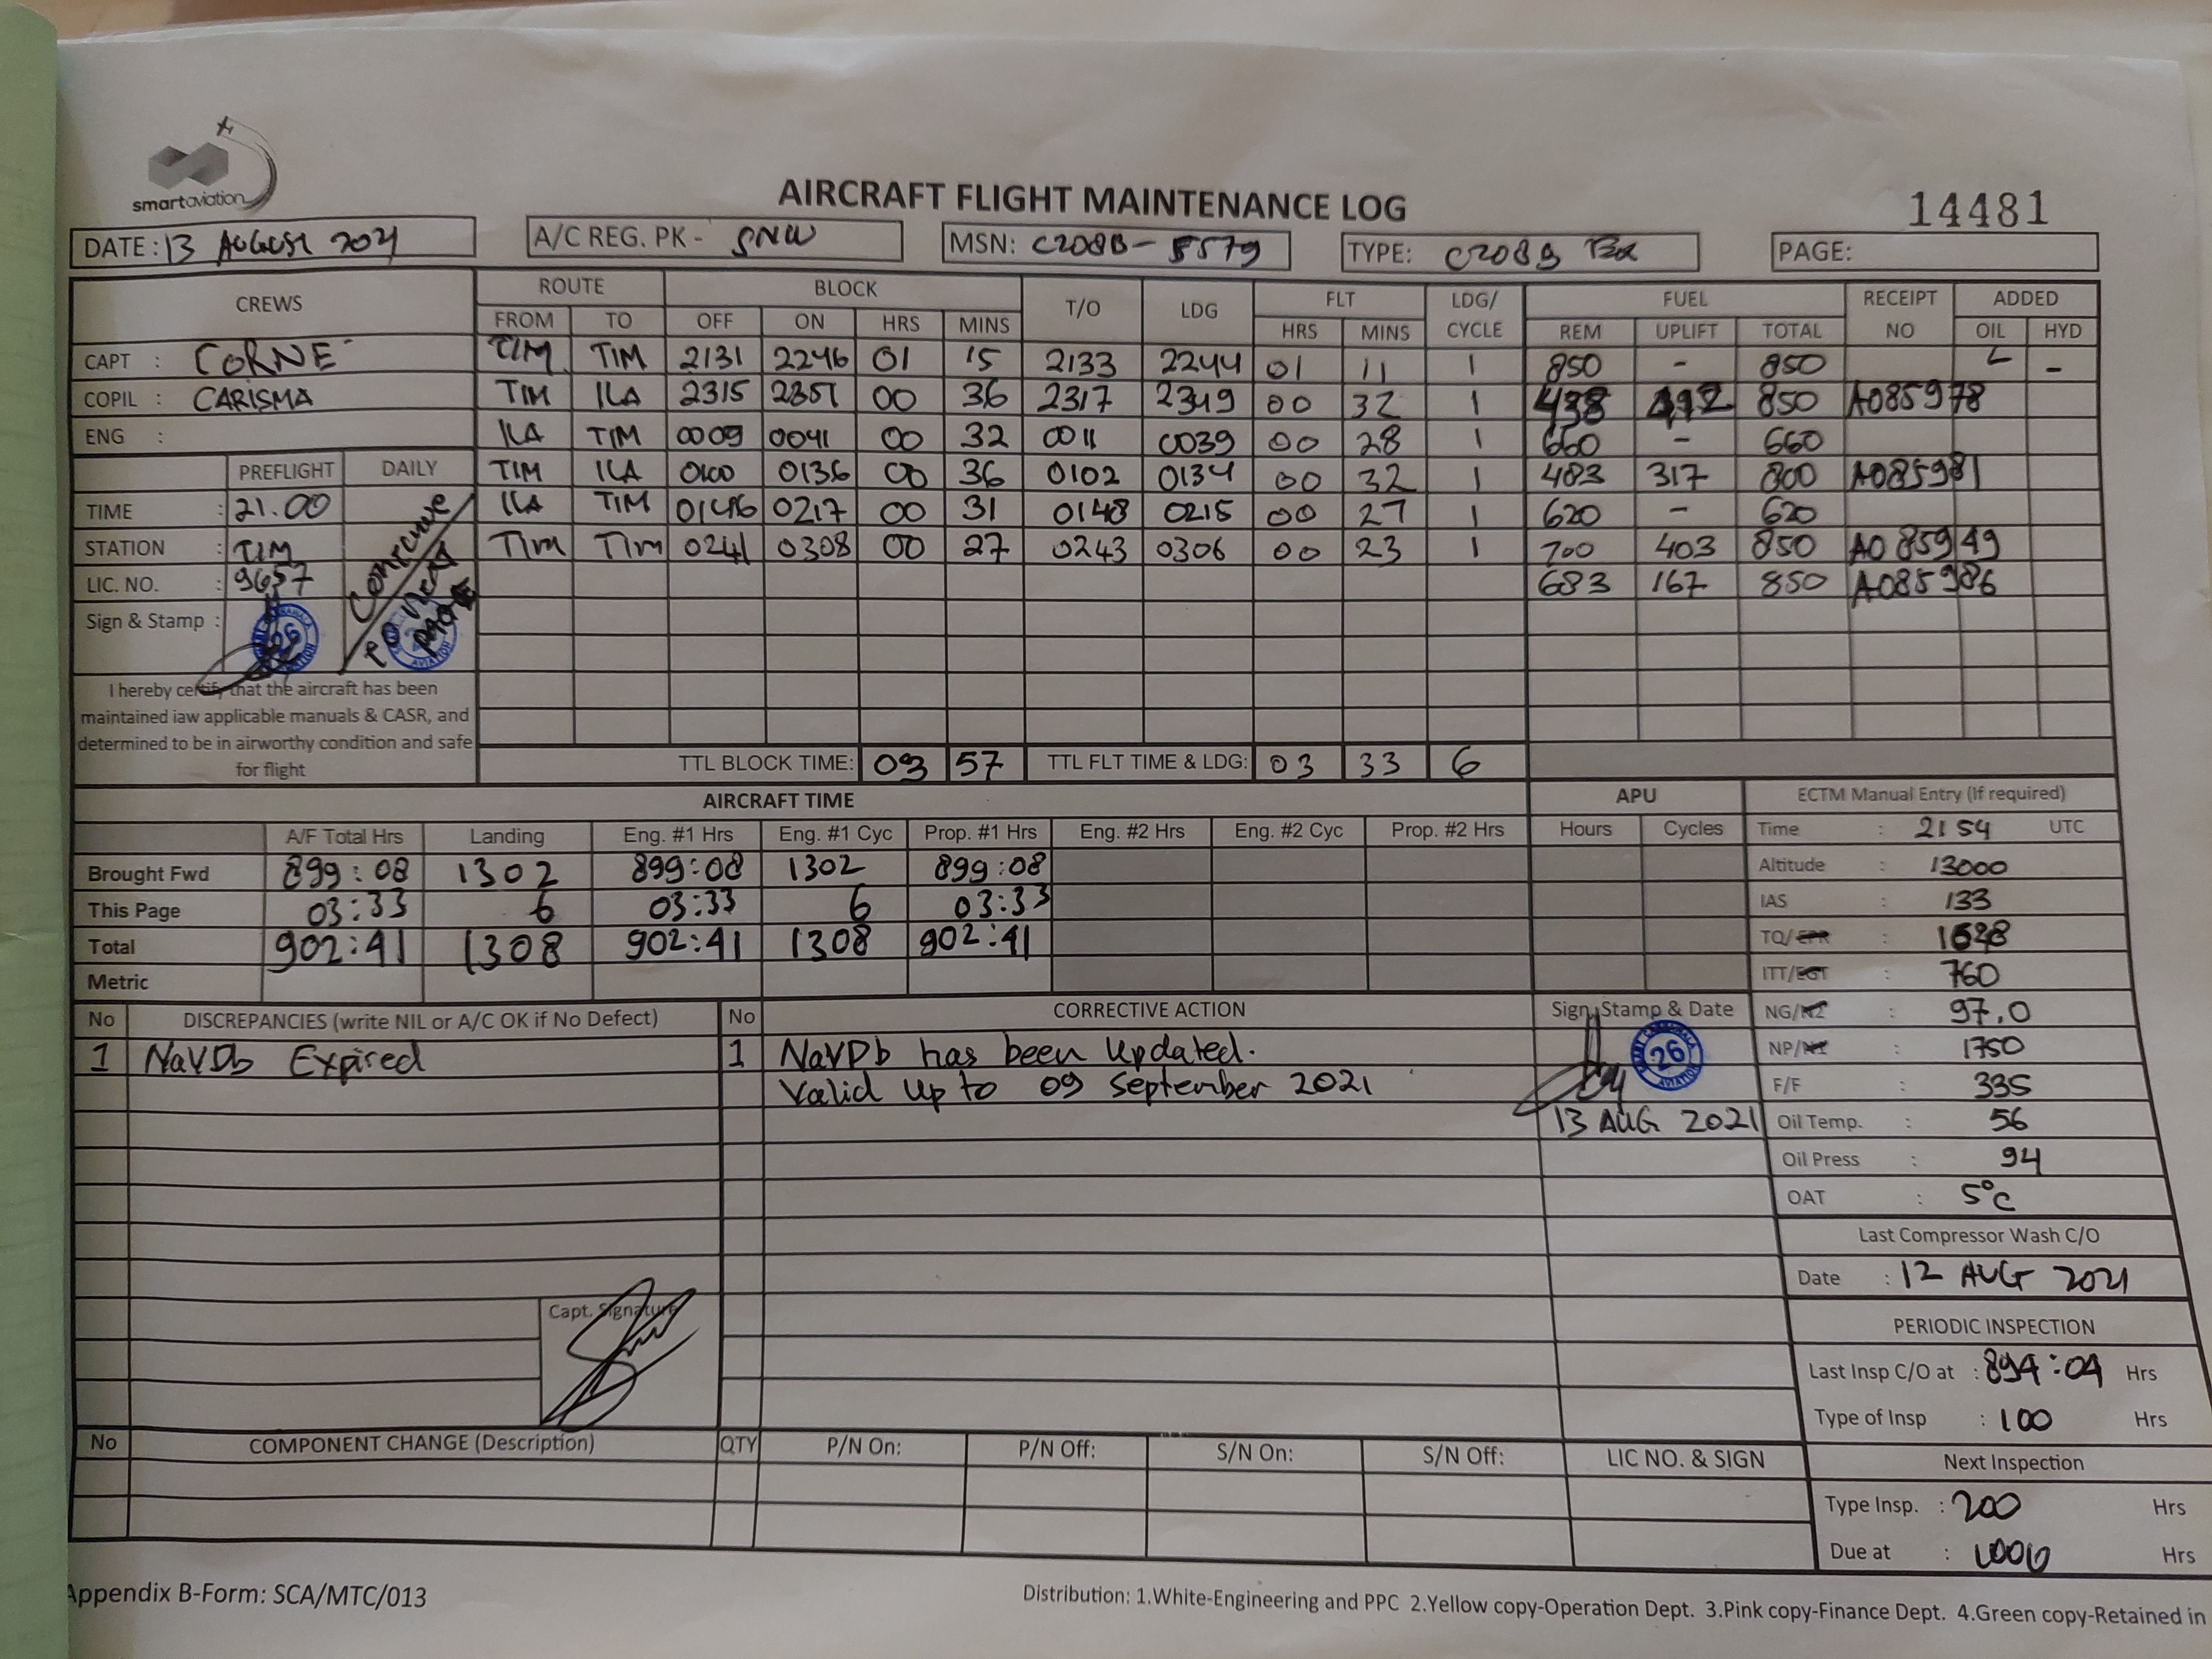 smartaviation
AIRCRAFT FLIGHT MAINTENANCE LOG
14481
DATE: 13 AUGUST 2021 A/C REG. PK - SNW MSN: C208B - 5579 TYPE: C208B EX PAGE:
CREWS ROUTE BLOCK T/O LDG FLT LDG/ CYCLE FUEL RECEIPT NO ADDED
FROM TO OFF ON HRS MINS HRS MINS REM UPLIFT TOTAL OIL HYD
CAPT : CORNE TIM TIM 2131 2246 01 15 2133 2244 01 11 1 850 - 850 -
COPIL : CARISMA TIM ILA 2315 2351 00 36 2317 2349 00 32 1 438 412 850 A085978
ENG : ILA TIM 0009 0041 00 32 0011 0039 00 28 1 660 - 660
PREFLIGHT DAILY TIM ILA 0100 0136 00 36 0102 0134 00 32 1 483 317 800 A085981
TIME : 21.00 ILA TIM 0146 0217 00 31 0148 0215 00 27 1 620 - 620
STATION : TIM TIM TIM 0241 0308 00 27 0243 0306 00 23 1 700 403 850 A085949
LIC. NO. : 9657 683 167 850 A085986
Continue to next page
Sign & Stamp : 26 AVIATION
I hereby certify that the aircraft has been
maintained iaw applicable manuals & CASR, and
determined to be in airworthy condition and safe
for flight
TTL BLOCK TIME: 03 57 TTL FLT TIME & LDG: 03 33 6
AIRCRAFT TIME APU ECTM Manual Entry (If required)
A/F Total Hrs Landing Eng. #1 Hrs Eng. #1 Cyc Prop. #1 Hrs Eng. #2 Hrs Eng. #2 Cyc Prop. #2 Hrs Hours Cycles Time : 2154 UTC
Brought Fwd 899:08 1302 899:08 1302 899:08 Altitude : 13000
This Page 03:33 6 03:33 6 03:33 IAS : 133
Total 902:41 1308 902:41 1308 902:41 TQ/EPR : 1628
Metric ITT/EGT : 760
No DISCREPANCIES (write NIL or A/C OK if No Defect) No CORRECTIVE ACTION Sign, Stamp & Date NG/N2 : 97.0
1 NavDb Expired 1 NavDb has been updated. 26 AVIATION NP/N1 : 1750
Valid up to 09 September 2021 F/F : 335
13 AUG 2021 Oil Temp. : 56
Oil Press : 94
OAT : 5°C
Last Compressor Wash C/O
Date : 12 AUG 2021
Capt. Signature
PERIODIC INSPECTION
Last Insp C/O at : 894:04 Hrs
Type of Insp : 100 Hrs
No COMPONENT CHANGE (Description) QTY P/N On: P/N Off: S/N On: S/N Off: LIC NO. & SIGN Next Inspection
Type Insp. : 200 Hrs
Due at : 1000 Hrs
Appendix B-Form: SCA/MTC/013
Distribution: 1.White-Engineering and PPC 2.Yellow copy-Operation Dept. 3.Pink copy-Finance Dept. 4.Green copy-Retained in